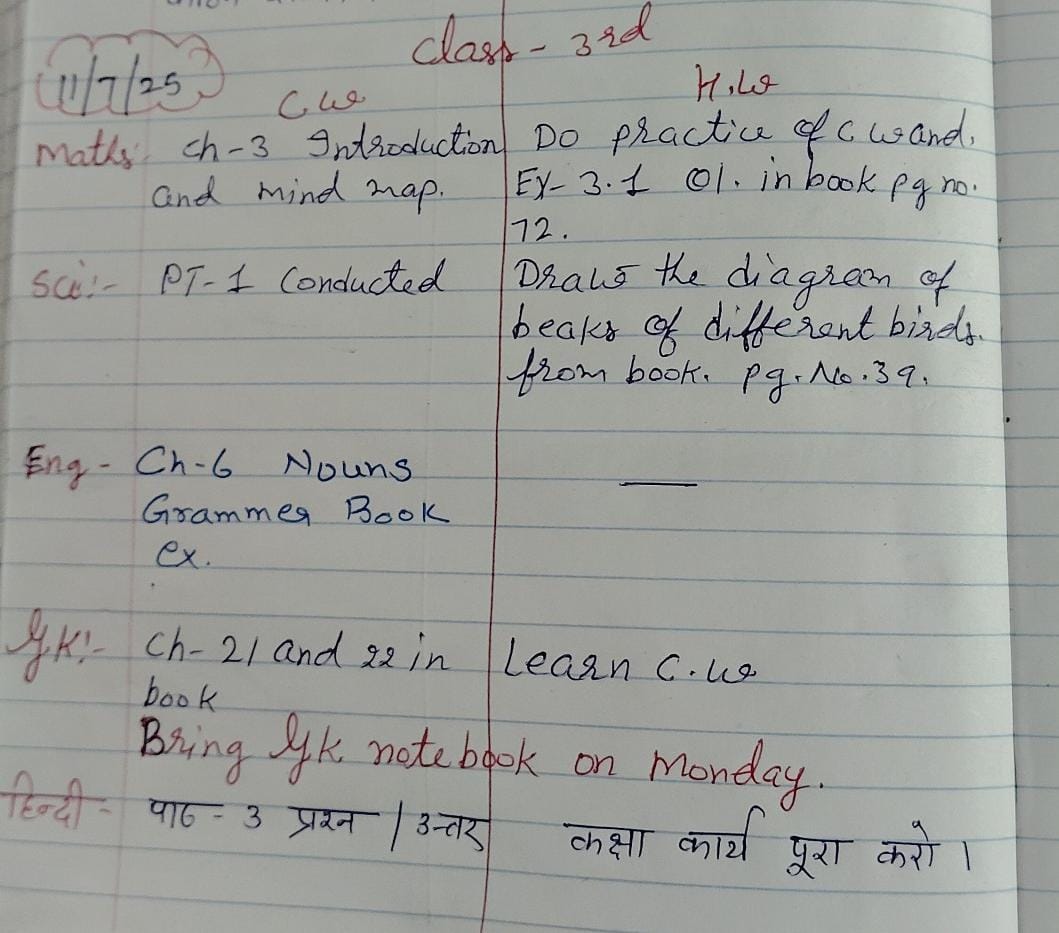 Class - 3rd
11/7/25
C.W
H.W
Maths: Ch-3 Introduction
and mind map.
Do practice of C.W and.
Ex- 3.1 Q1. in book pg no.
72.
Sci:- PT-1 Conducted
Draw the diagram of
beaks of different birds.
from book. pg. No. 39.
Eng - Ch-6 Nouns
Grammer Book
ex.
—
GK:- Ch- 21 and 22 in
book
Learn C.W
Bring GK notebook on Monday.
हिन्दी - पाठ - 3 प्रश्न / उत्तर
कक्षा कार्य पूरा करो ।